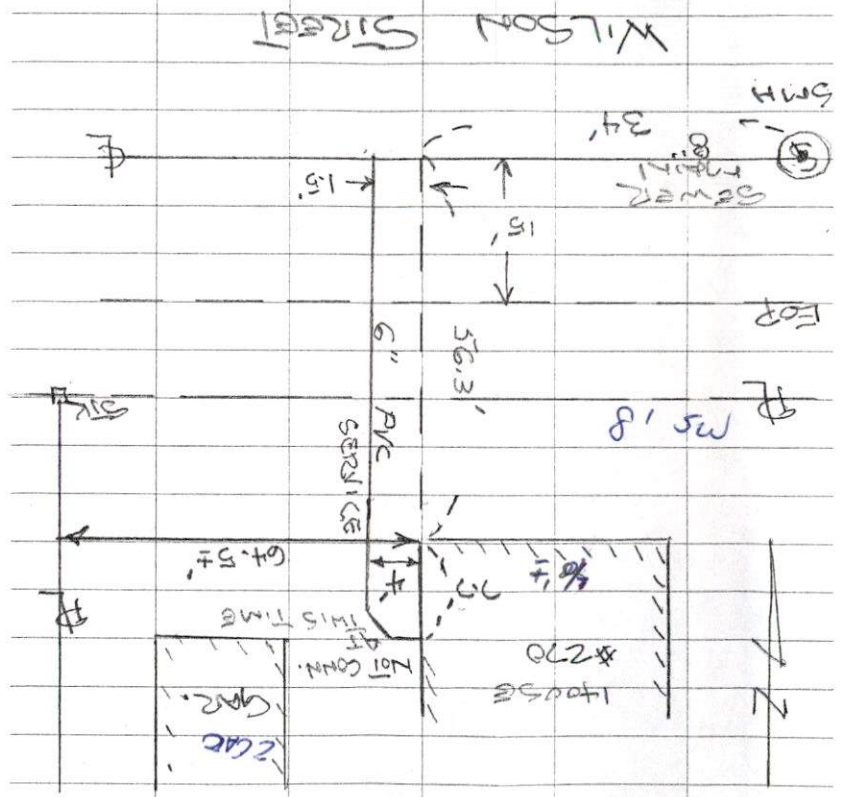 2 CAR
GAR.
HOUSE
#270
N
NOT CONN.
AT
THIS TIME
PL
4'
7.7
64.5±'
6" PVC
SERVICE
56.3'
STK
PL
EOP
15'
1.5'
SEWER
MAIN
8"
34'
S
SMH
WILSON STREET